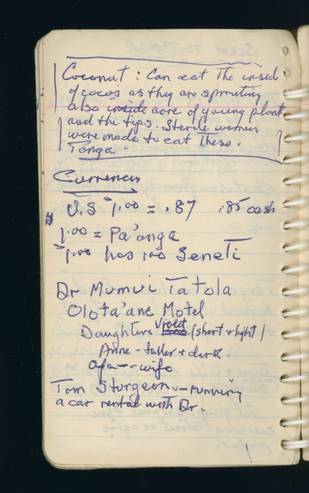 Coconut: Can eat the insid
of cocos as they are sprouting
also inside core of young plant
and the tips. Sterile women
were made to eat these.
Tonga.
Currency
U.S $1.00 = .87 .85 cash
1.00 = Pa'anga
1.00 has 100 Seneti
Dr Mumui Tatola
Olota'ane Motel
Daughters Violet (short + light)
Anne - taller + dark.
Ofa - wife
Tom Sturgeon - running
a car rental with Dr.